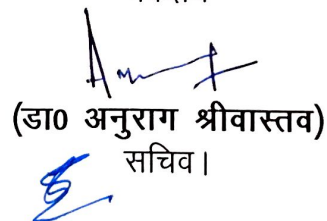 (डा0 अनुराग श्रीवास्तव)
सचिव।